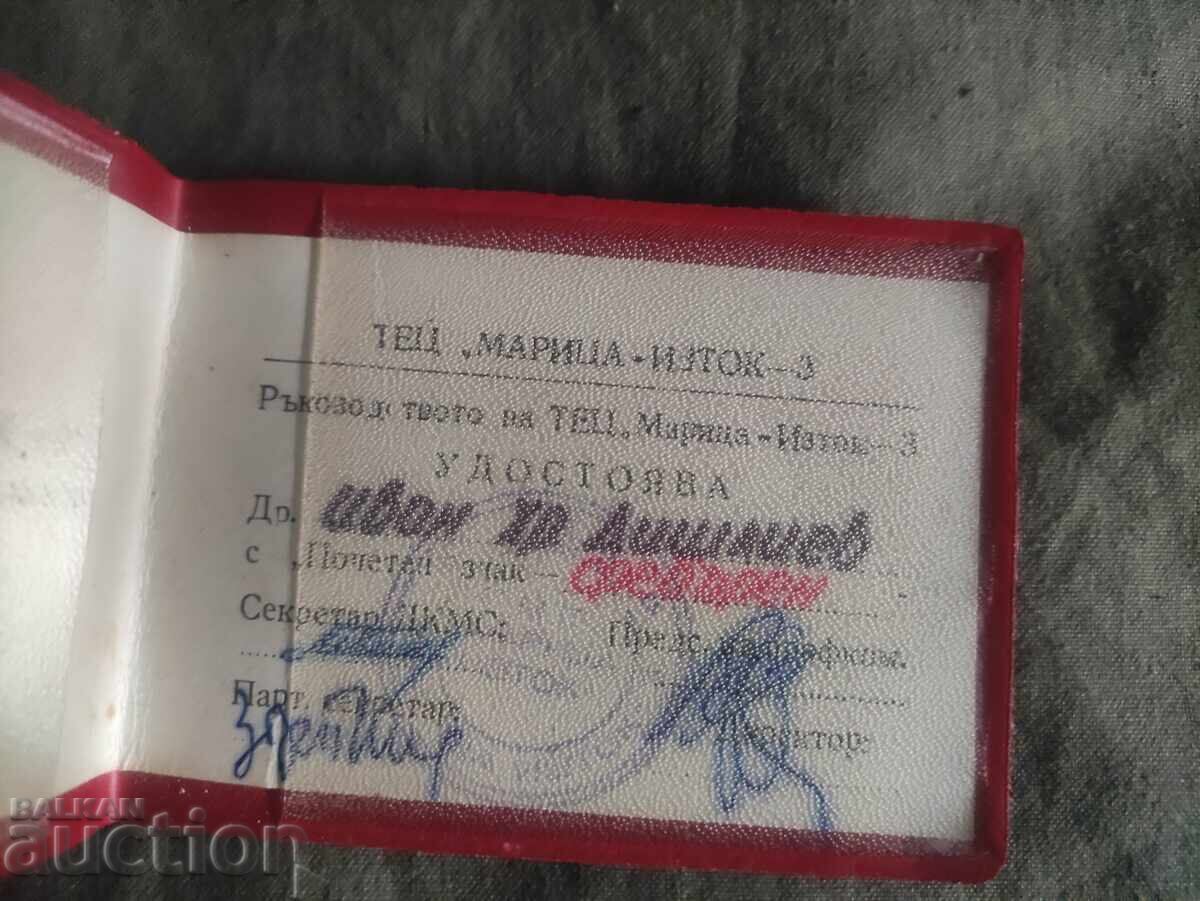 ТЕЦ „МАРИЦА-ИЗТОК—3
Ръководството на ТЕЦ „Марица-Изток—3
УДОСТОЯВА
Др. Иван Хр
с „Почетен знак— сребърен
Секретар ДКМС: Предс. профком.
Парт. секретар: Директор:
ТОК
BALKAN
auction